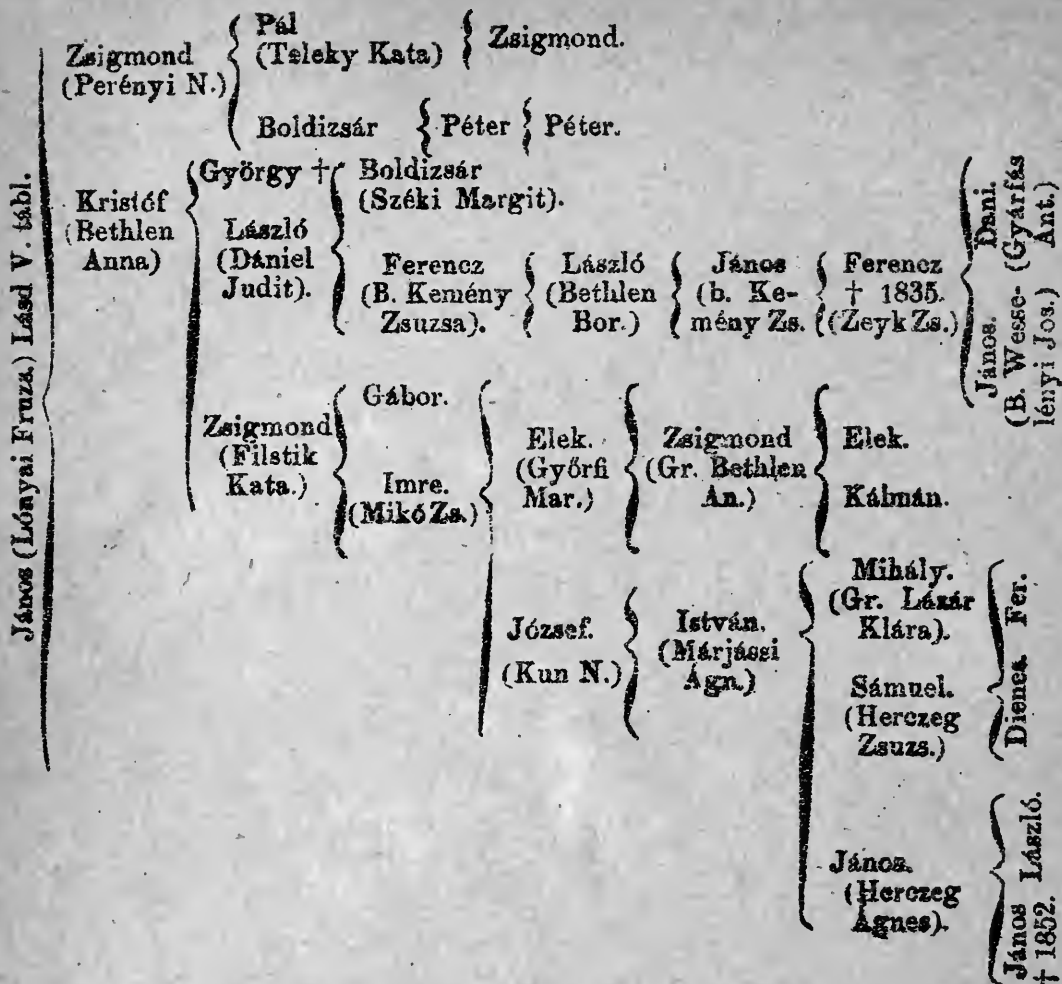 János (Lónyai Fruza.) Lásd V. tábl.
Zsigmond
(Perényi N.)
Pál
(Teleky Kata)
Zsigmond.
Boldizsár
Péter
Péter.
Kristóf
(Bethlen
Anna)
György †
László
(Dániel
Judit).
Boldizsár
(Széki Margit).
Ferencz
(B. Kemény
Zsuzsa).
László
(Bethlen
Bor.)
János
(b. Ke-
mény Zs.
Ferencz
† 1835.
(Zeyk Zs.)
János.
(B. Wesse-
lényi Jos.)
Dani.
(Gyárfás
Ant.)
Zsigmond
(Filstik
Kata.)
Gábor.
Imre.
(Mikó Zs.)
Elek.
(Győrfi
Mar.)
Zsigmond
(Gr. Bethlen
An.)
Elek.
Kálmán.
József.
(Kun N.)
István.
(Márjássi
Ágn.)
Mihály.
(Gr. Lázár
Klára).
Sámuel.
(Herczeg
Zsuzs.)
Dienes. Fer.
János.
(Herczeg
Ágnes).
János László.
† 1852.